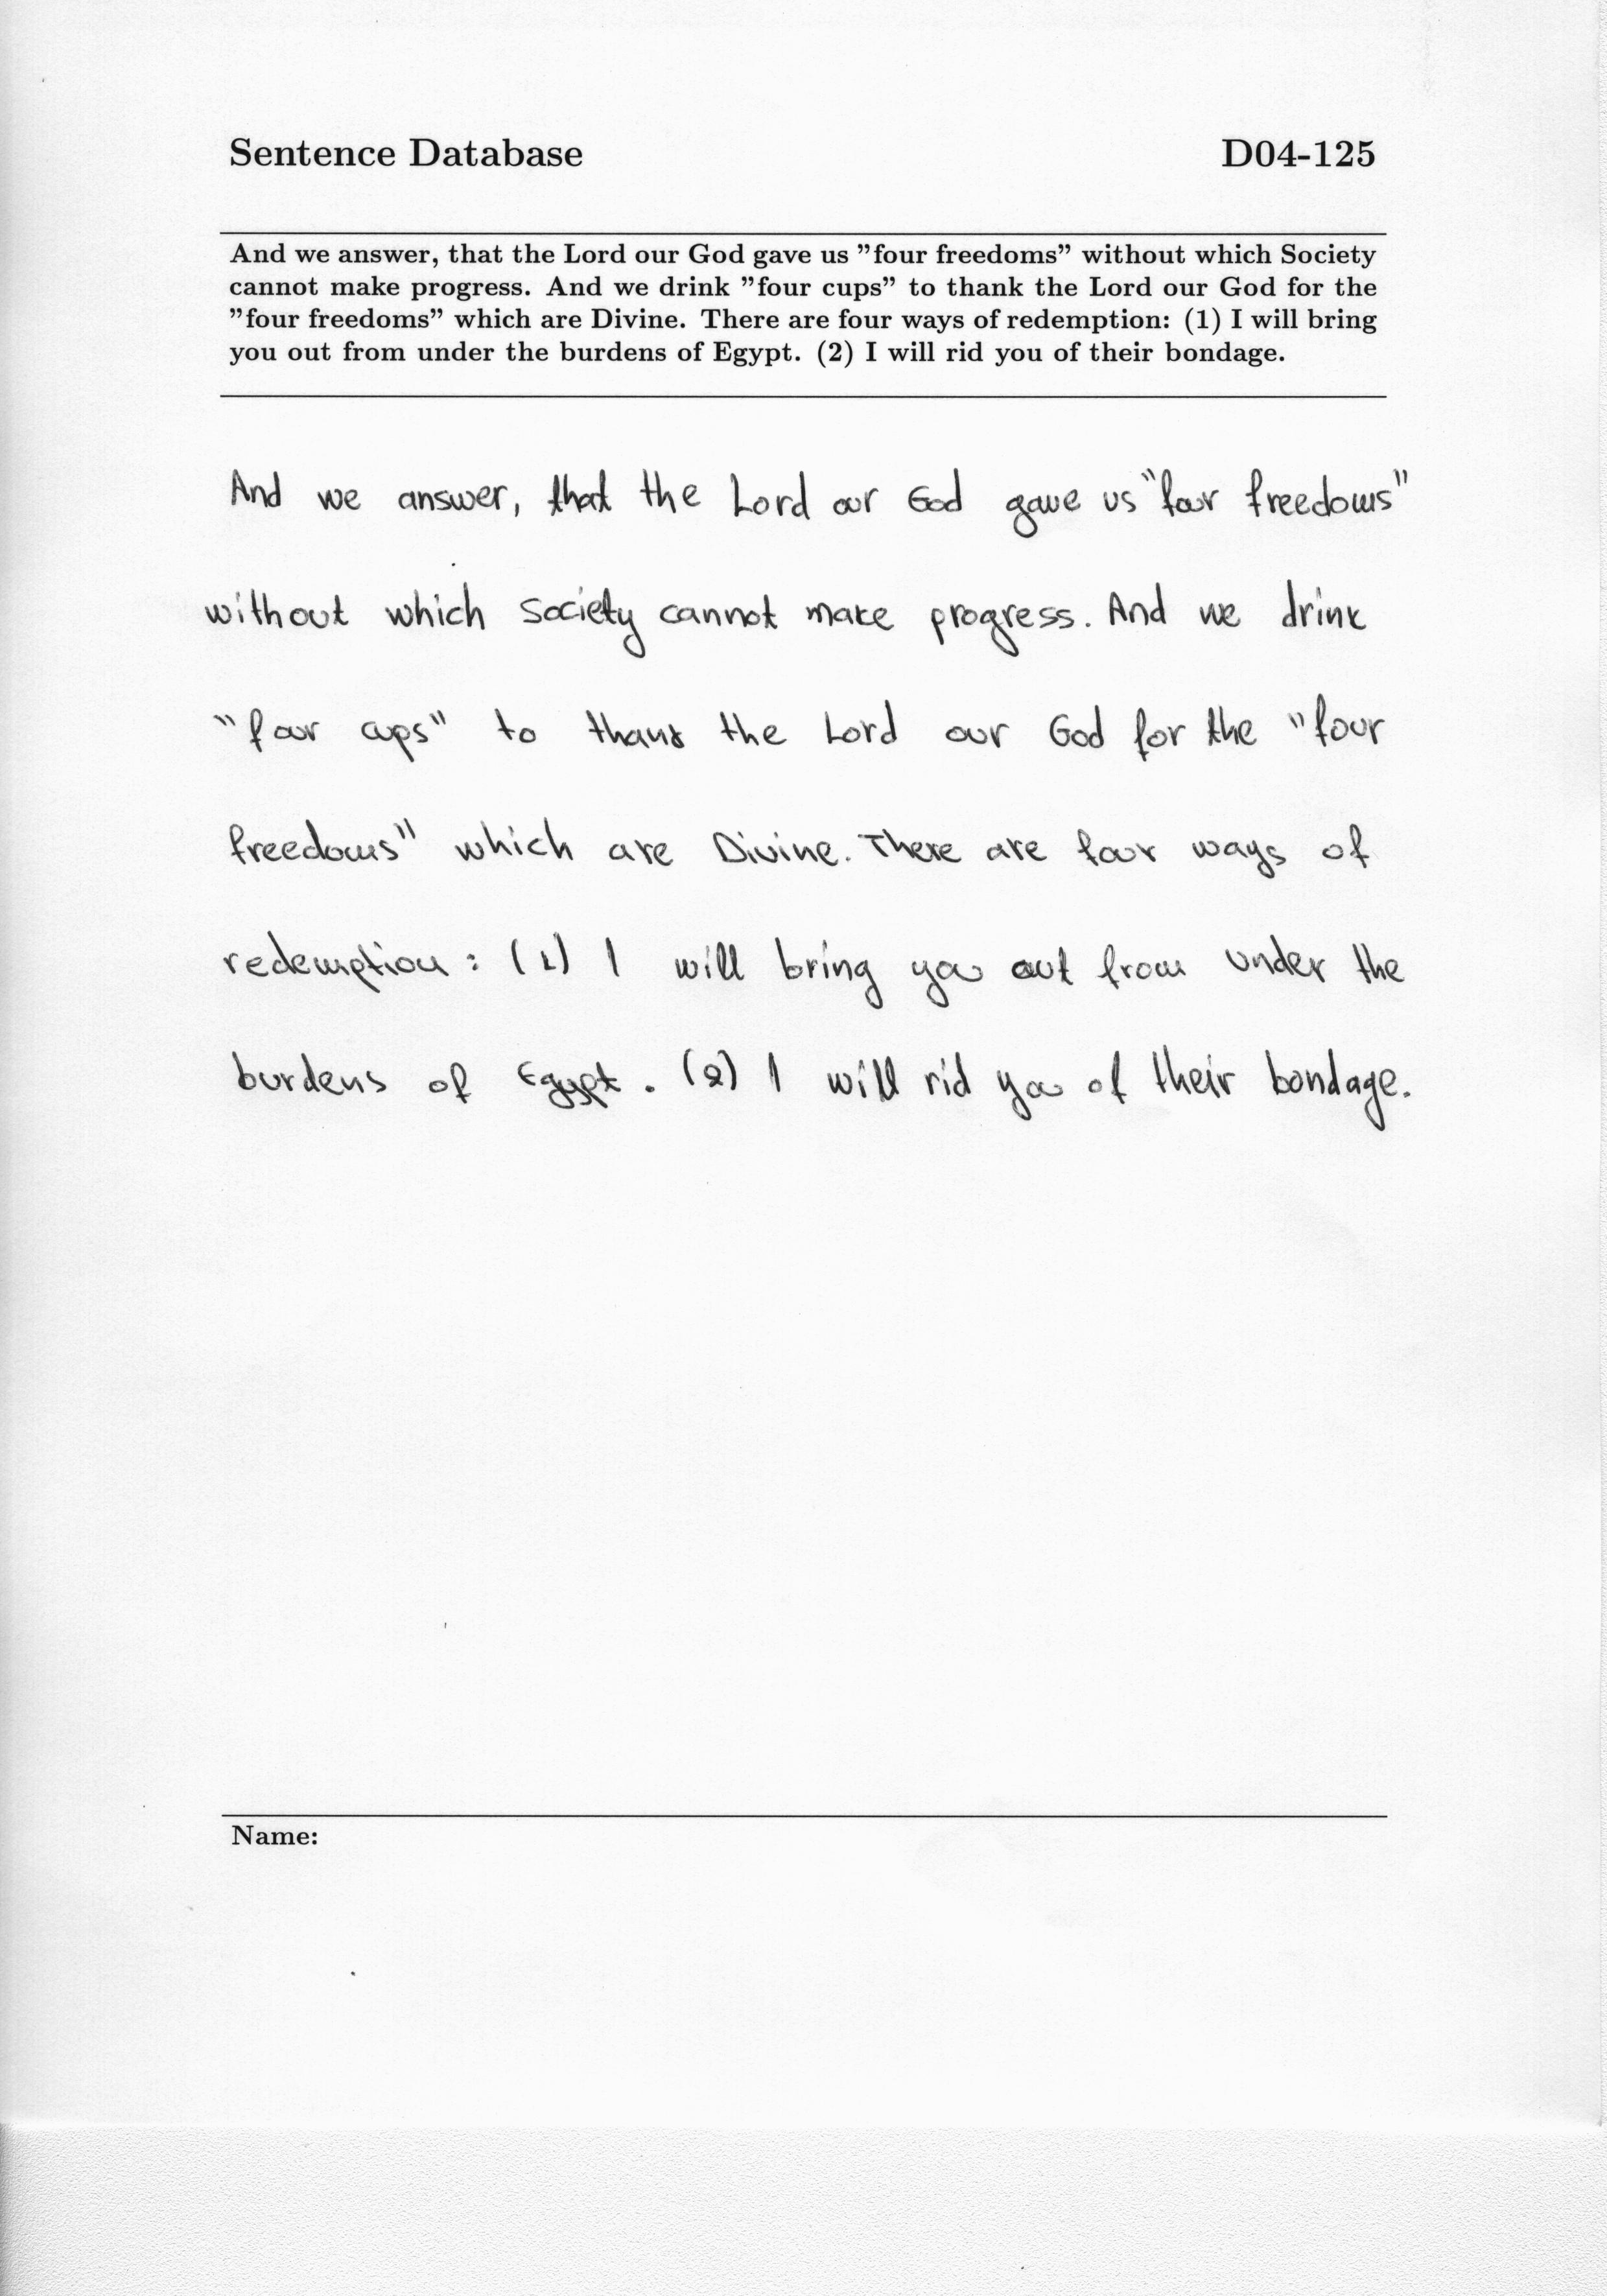 Sentence Database D04-125
And we answer, that the Lord our God gave us "four freedoms" without which Society
cannot make progress. And we drink "four cups" to thank the Lord our God for the
"four freedoms" which are Divine. There are four ways of redemption: (1) I will bring
you out from under the burdens of Egypt. (2) I will rid you of their bondage.
And we answer, that the Lord our God gave us "four freedoms"
without which Society cannot make progress. And we drink
"four cups" to thank the Lord our God for the "four
freedoms" which are Divine. There are four ways of
redemption: (1) I will bring you out from under the
burdens of Egypt. (2) I will rid you of their bondage.
Name: